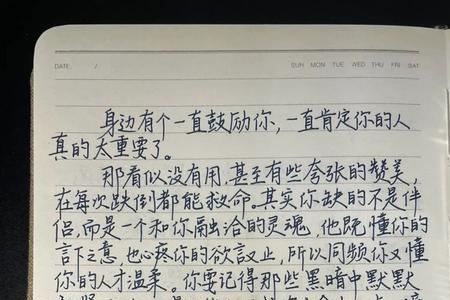 DATE: /
SUN MON TUE WED THU FRI SAT
身边有个一直鼓励你,一直肯定你的人
真的太重要了。
那看似没有用,甚至有些夸张的赞美,
在每次跌倒都能救命。其实你缺的不是伴
侣,而是一个和你融洽的灵魂,他既懂你的
言下之意,也心疼你的欲言又止,所以同频你又懂
你的人才温柔。你要记得那些黑暗中默默